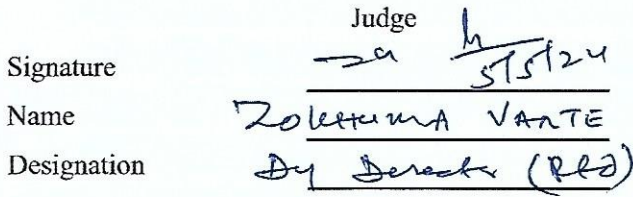 Judge
Signature 5/5/24
Name ZOKHUMA VARTE
Designation Dy Derector